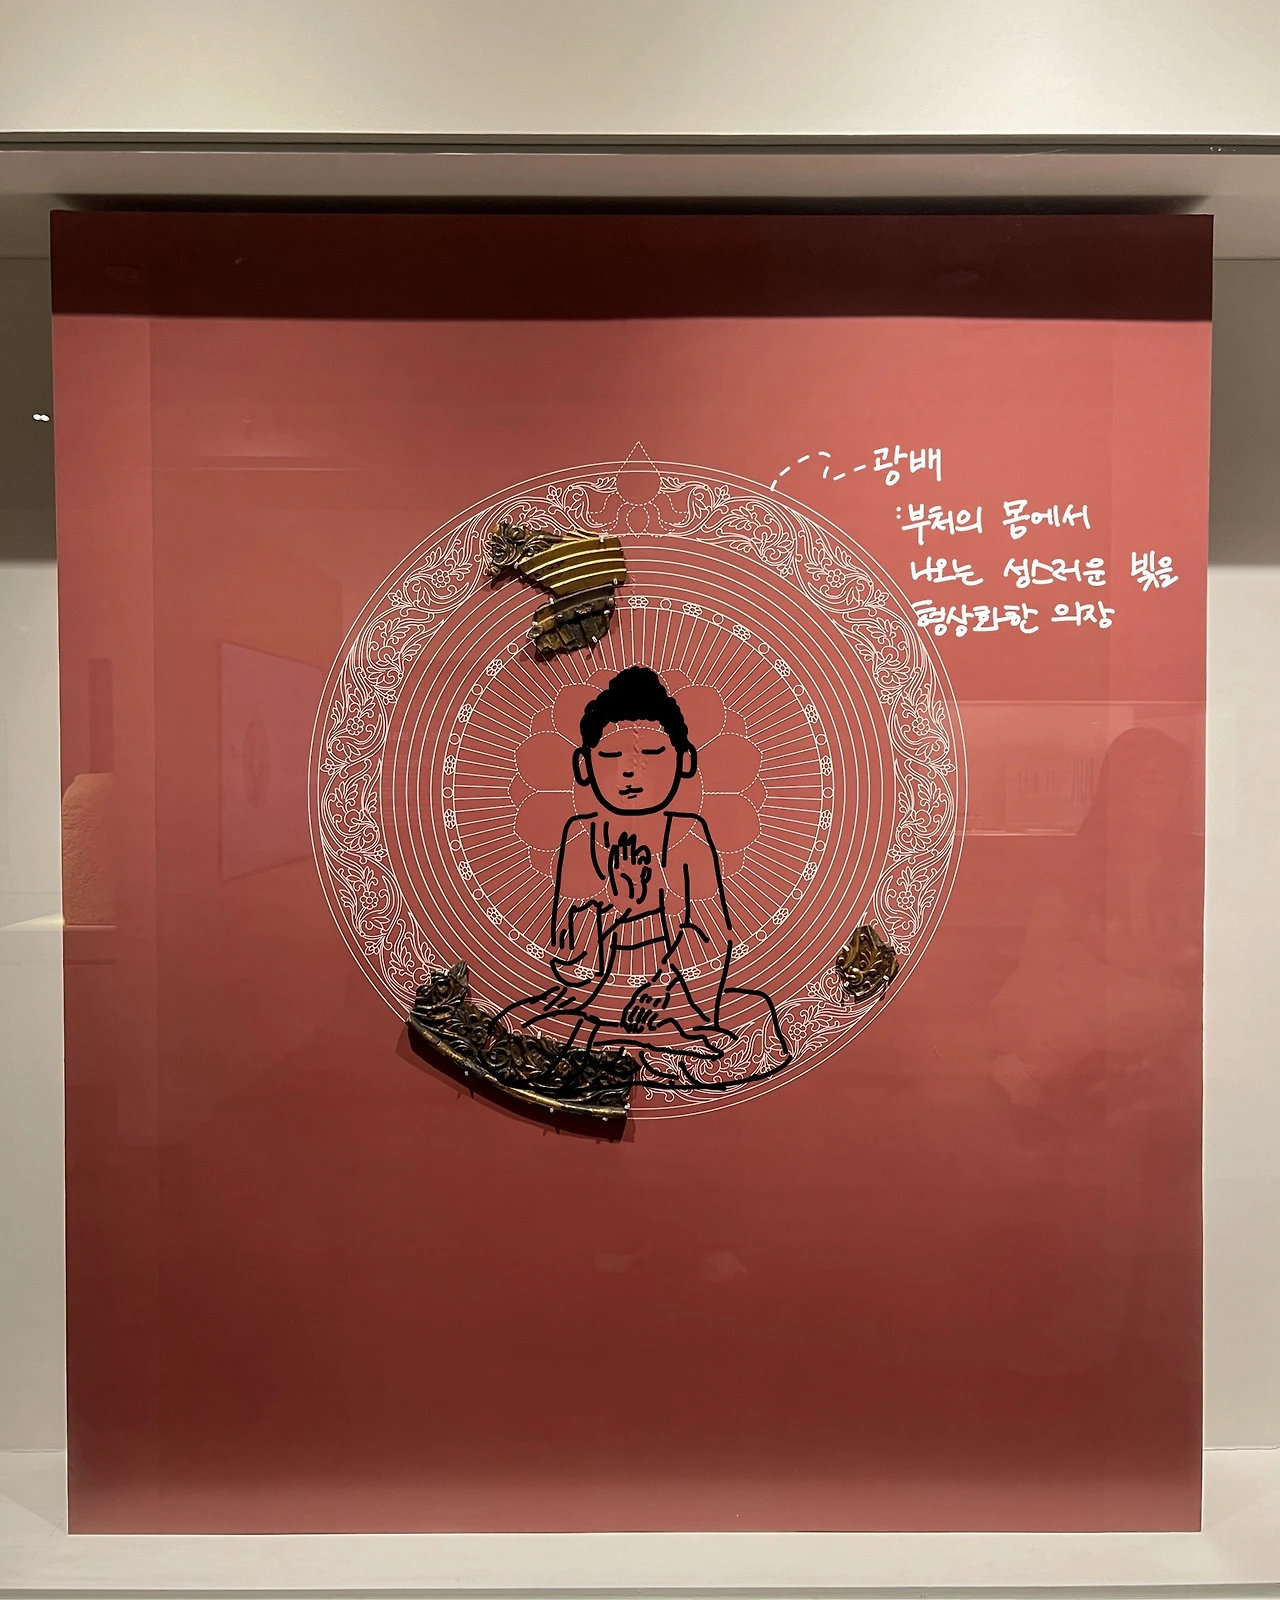 광배
:부처의 몸에서
나오는 성스러운 빛을
형상화한 의장